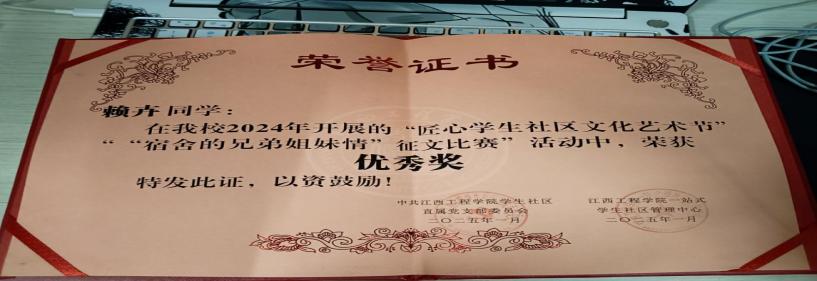 荣誉证书
赖卉同学：
在我校2024年开展的“匠心学生社区文化艺术节”
“ “宿舍的兄弟姐妹情”征文比赛”活动中，荣获
优秀奖
特发此证，以资鼓励！
中共江西工程学院学生社区
直属党支部委员会
二〇二五年一月
江西工程学院一站式
学生社区管理中心
二〇二五年一月